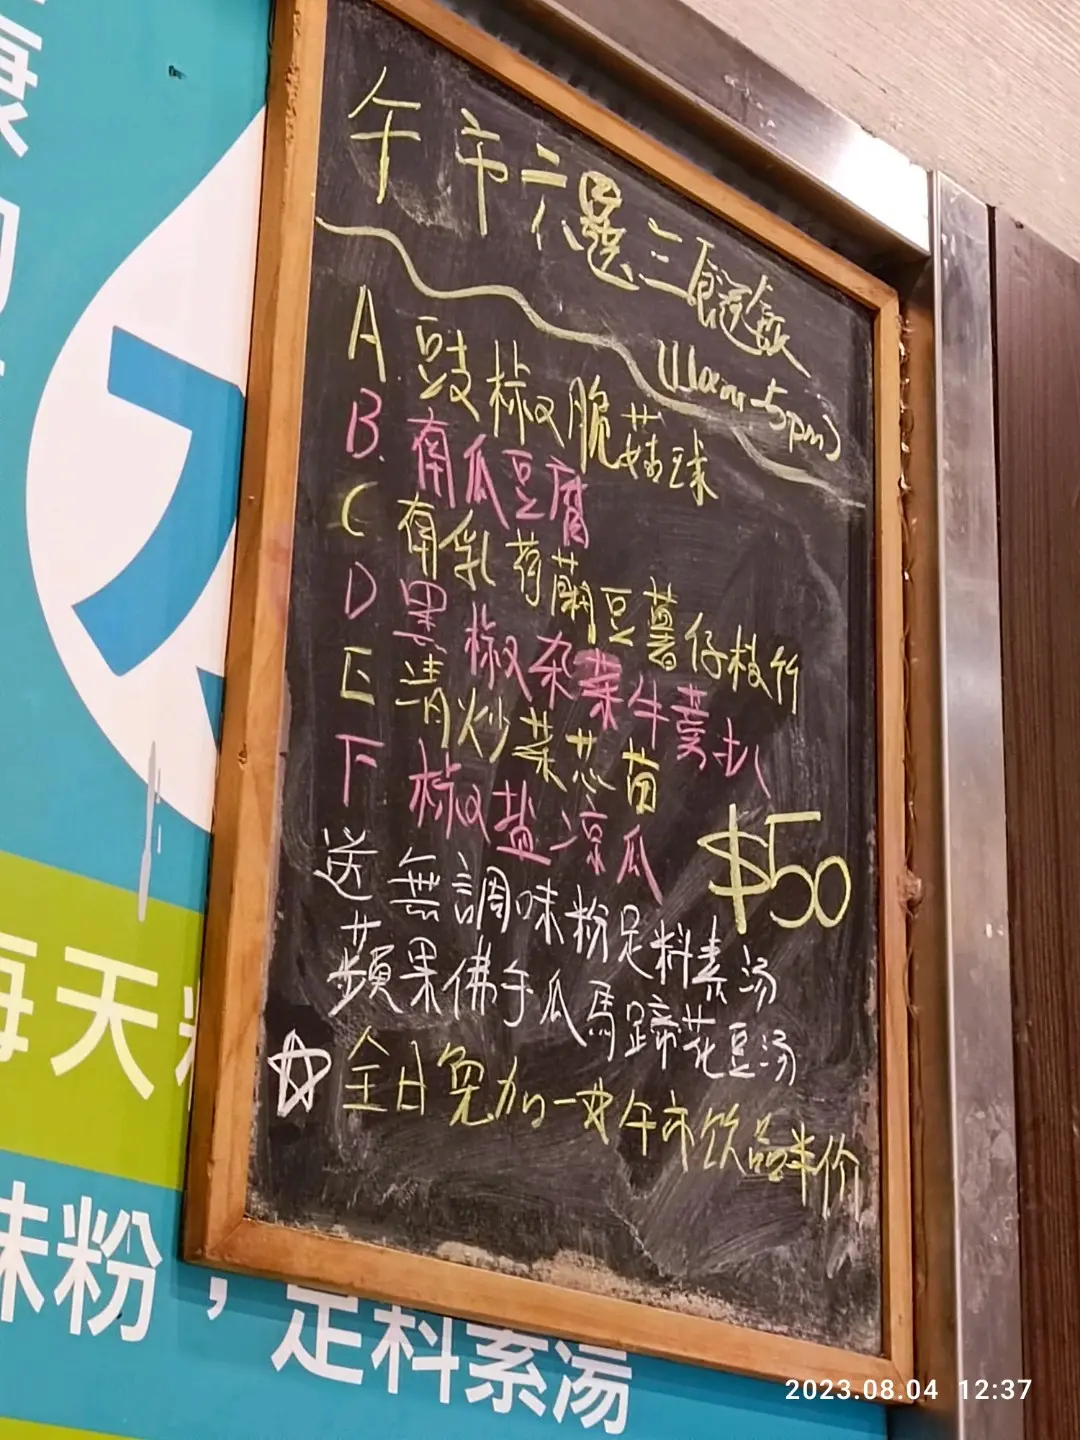 午市六選三餸飯
(11am-5pm)
A 豉椒脆菇球
B. 南瓜豆腐
C 南乳荷蘭豆薯仔枝竹
D 黑椒杂菜牛蒡扒
E 清炒菜芯苗
F 椒盐凉瓜
$50
送無調味粉足料素汤
蘋果佛手瓜馬蹄花豆汤
☆全日免加一 午市饮品半价
康
每天
味粉，足料素湯
2023.08.04 12:37